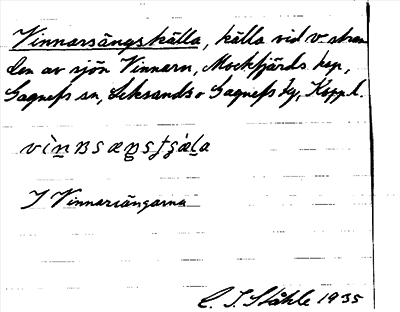 Vinnarsängskälla, källa vid v. stran
den av sjön Vinnarn, Mockfjärds kap,
Gagnefs sn, Leksands o Gagnefs tg, Kopp.l.
I Vinnarsängarna
C. I. Ståhle 1935